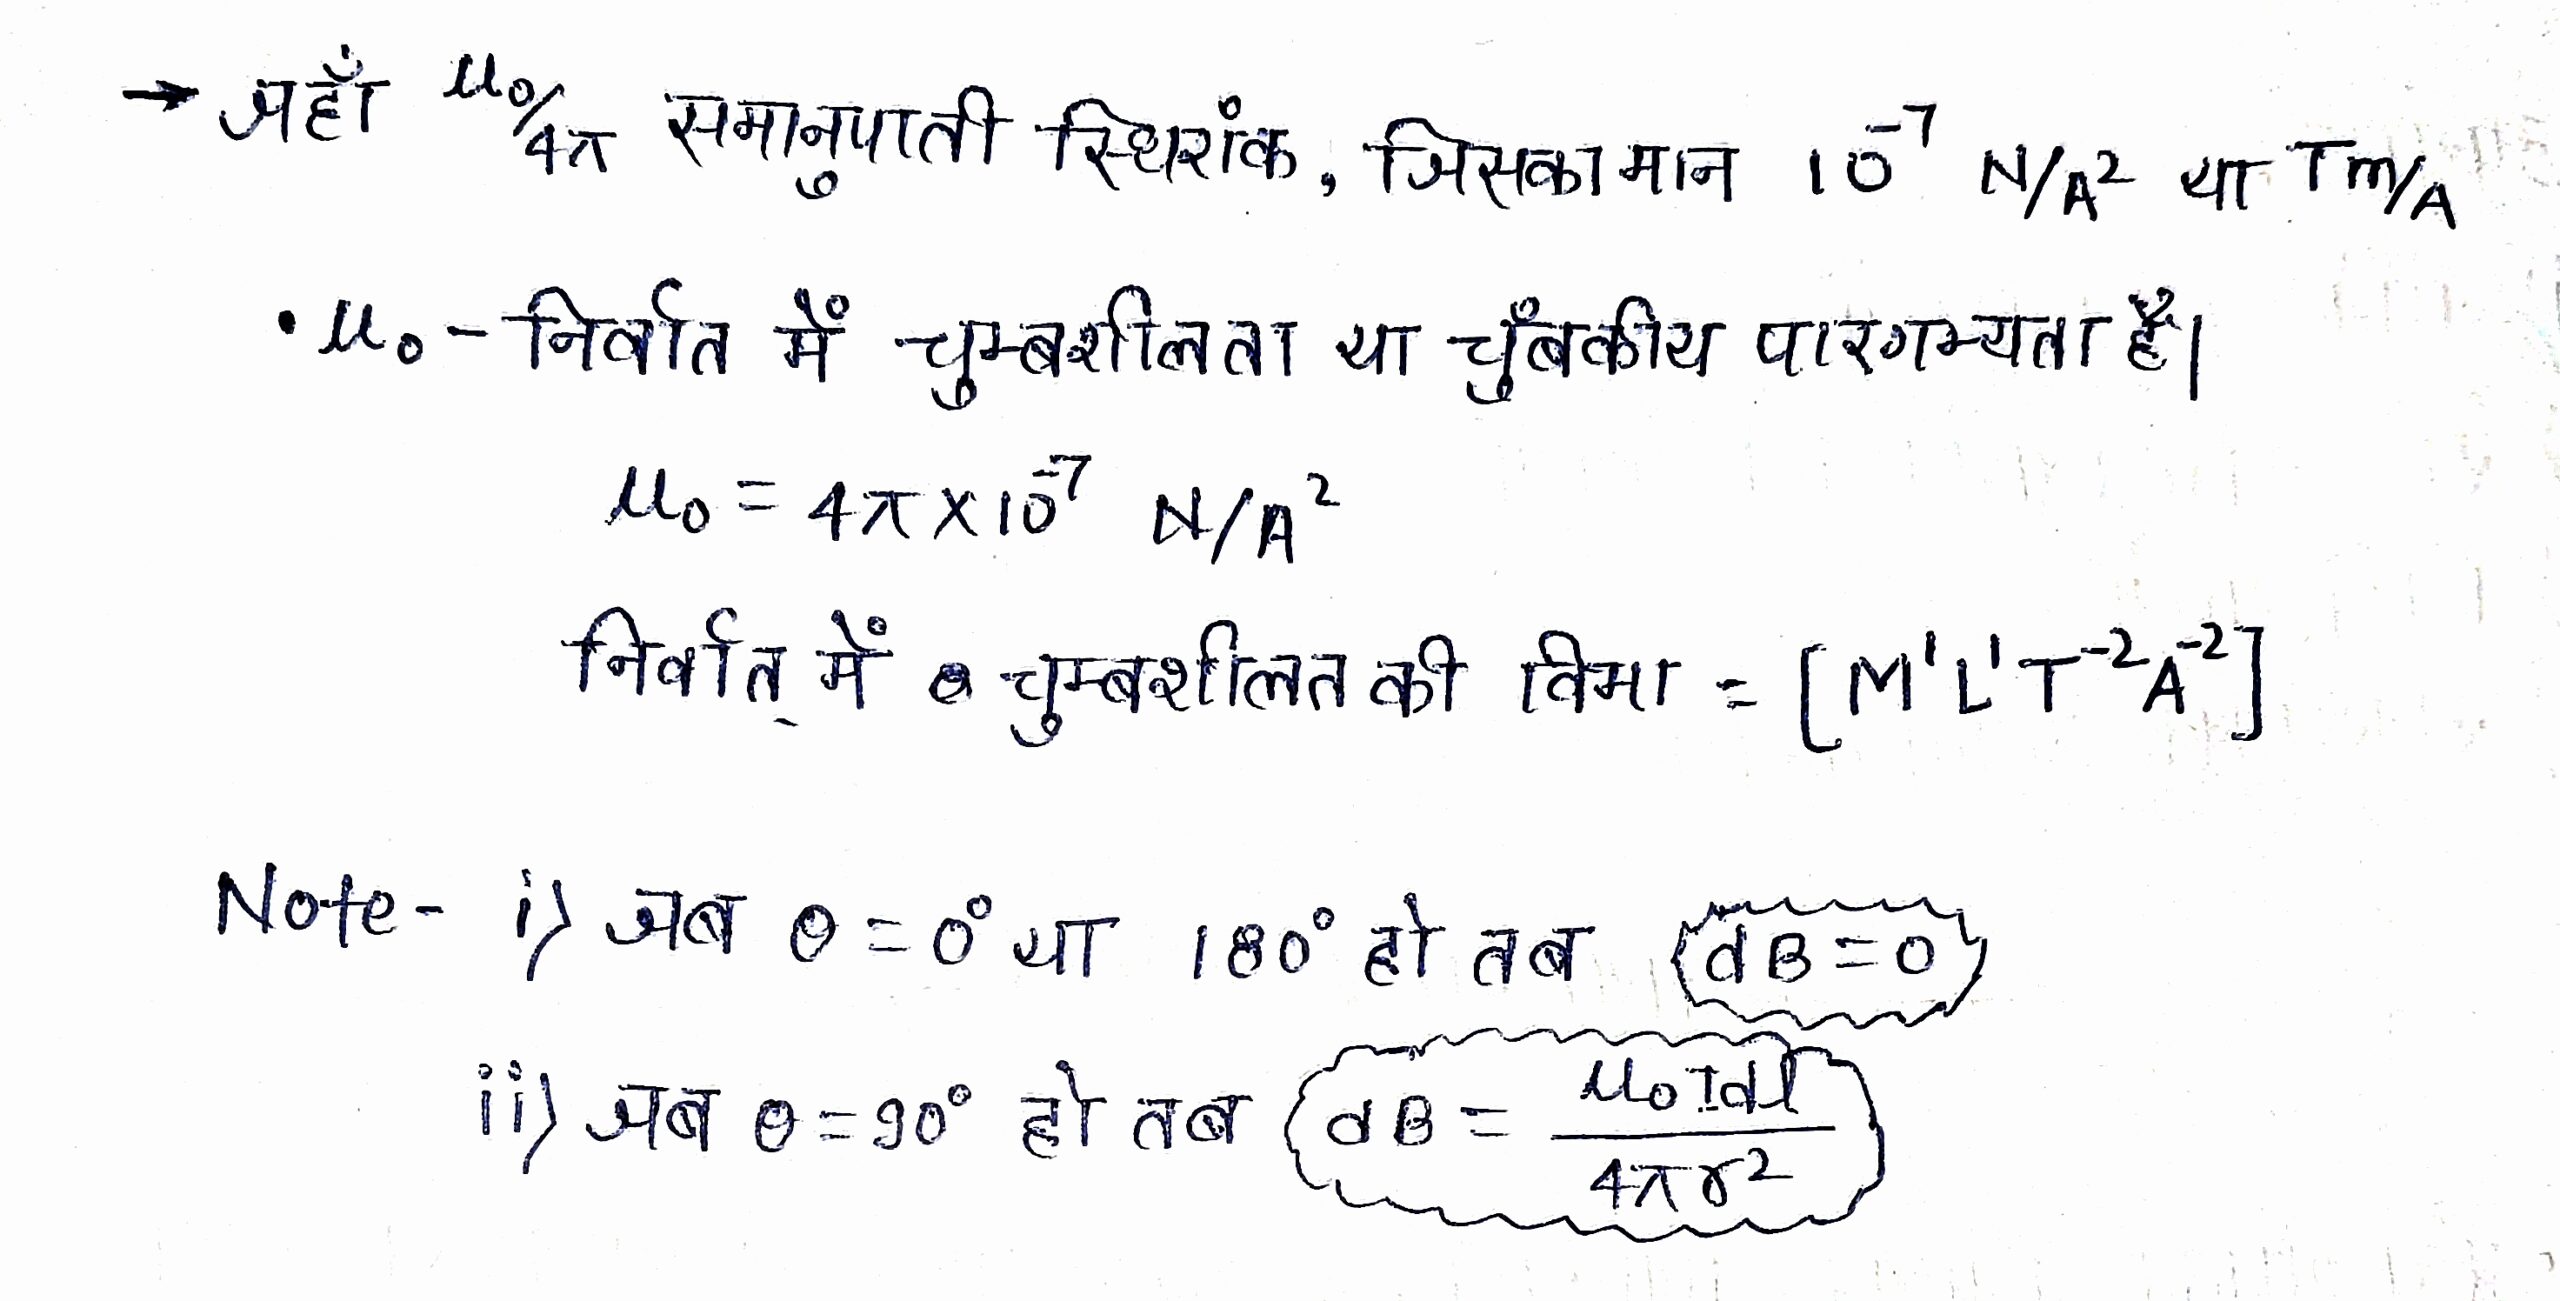 → जहाँ μ₀/4π समानुपाती स्थिरांक, जिसका मान 10⁻⁷ N/A² या Tm/A
• μ₀ - निर्वात में चुम्बशीलता या चुँबकीय पारगम्यता है।
μ₀ = 4π×10⁻⁷ N/A²
निर्वात् में चुम्बशीलत की विमा = [M¹L¹T⁻²A⁻²]
Note- i) जब θ = 0° या 180° हो तब dB = 0
ii) जब θ = 90° हो तब dB = μ₀Idl / 4πr²